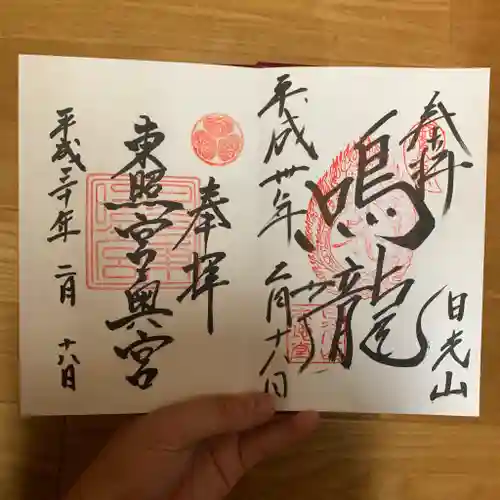 奉拝
日光山
鳴龍
平成卅年二月十八日
奉拝
東照宮奥宮
平成三十年二月十八日